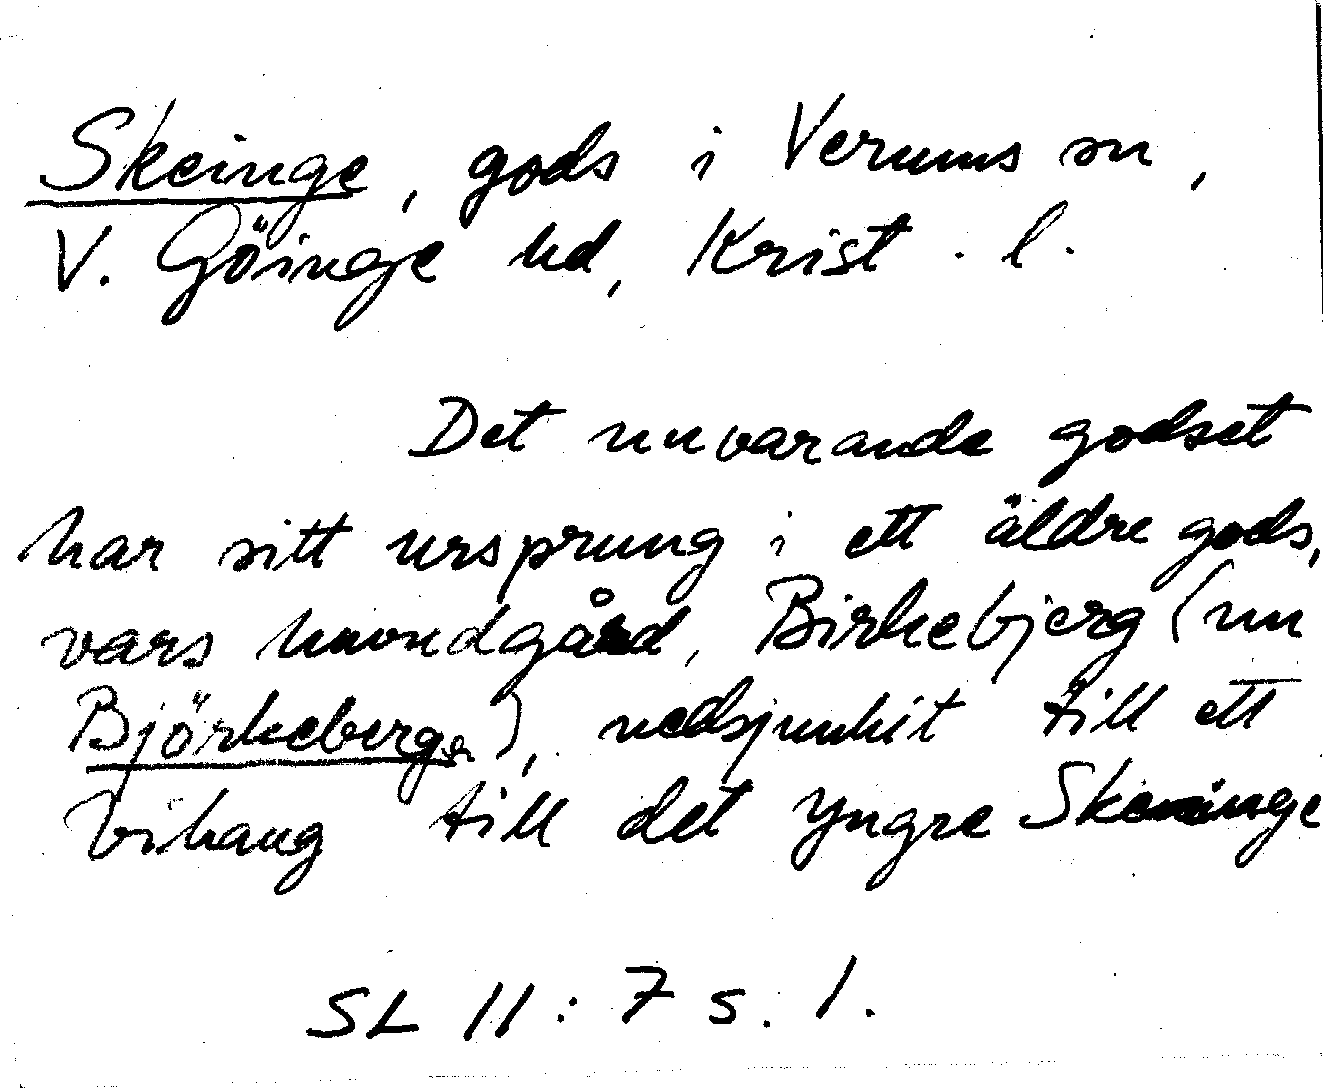 Skeinge, gods i Verums sn,
V. Göinge hd, Krist. l.
Det nuvarande godset
har sitt ursprung i ett äldre gods,
vars huvudgård, Birkebjerg (nu
Björkeberga), nedsjunkit till ett
bihang till det yngre Skeinge
SL 11:7 s. 1.